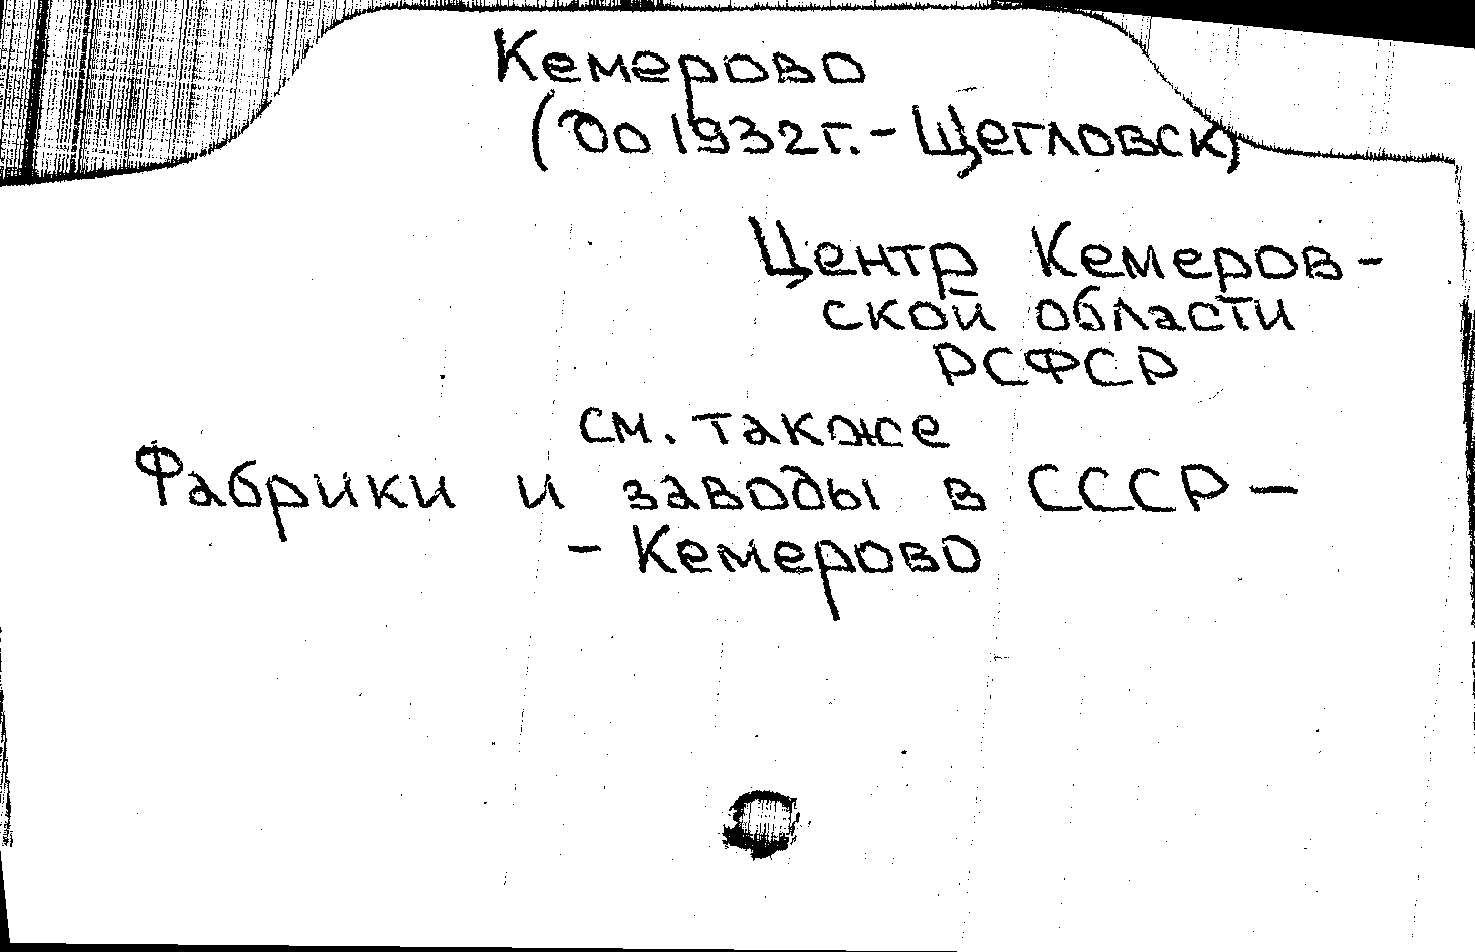 Кемерово
(до 1932г.- Щегловск)
Центр Кемеров-
ской области
РСФСР
см. также
Фабрики и заводы в СССР -
- Кемерово